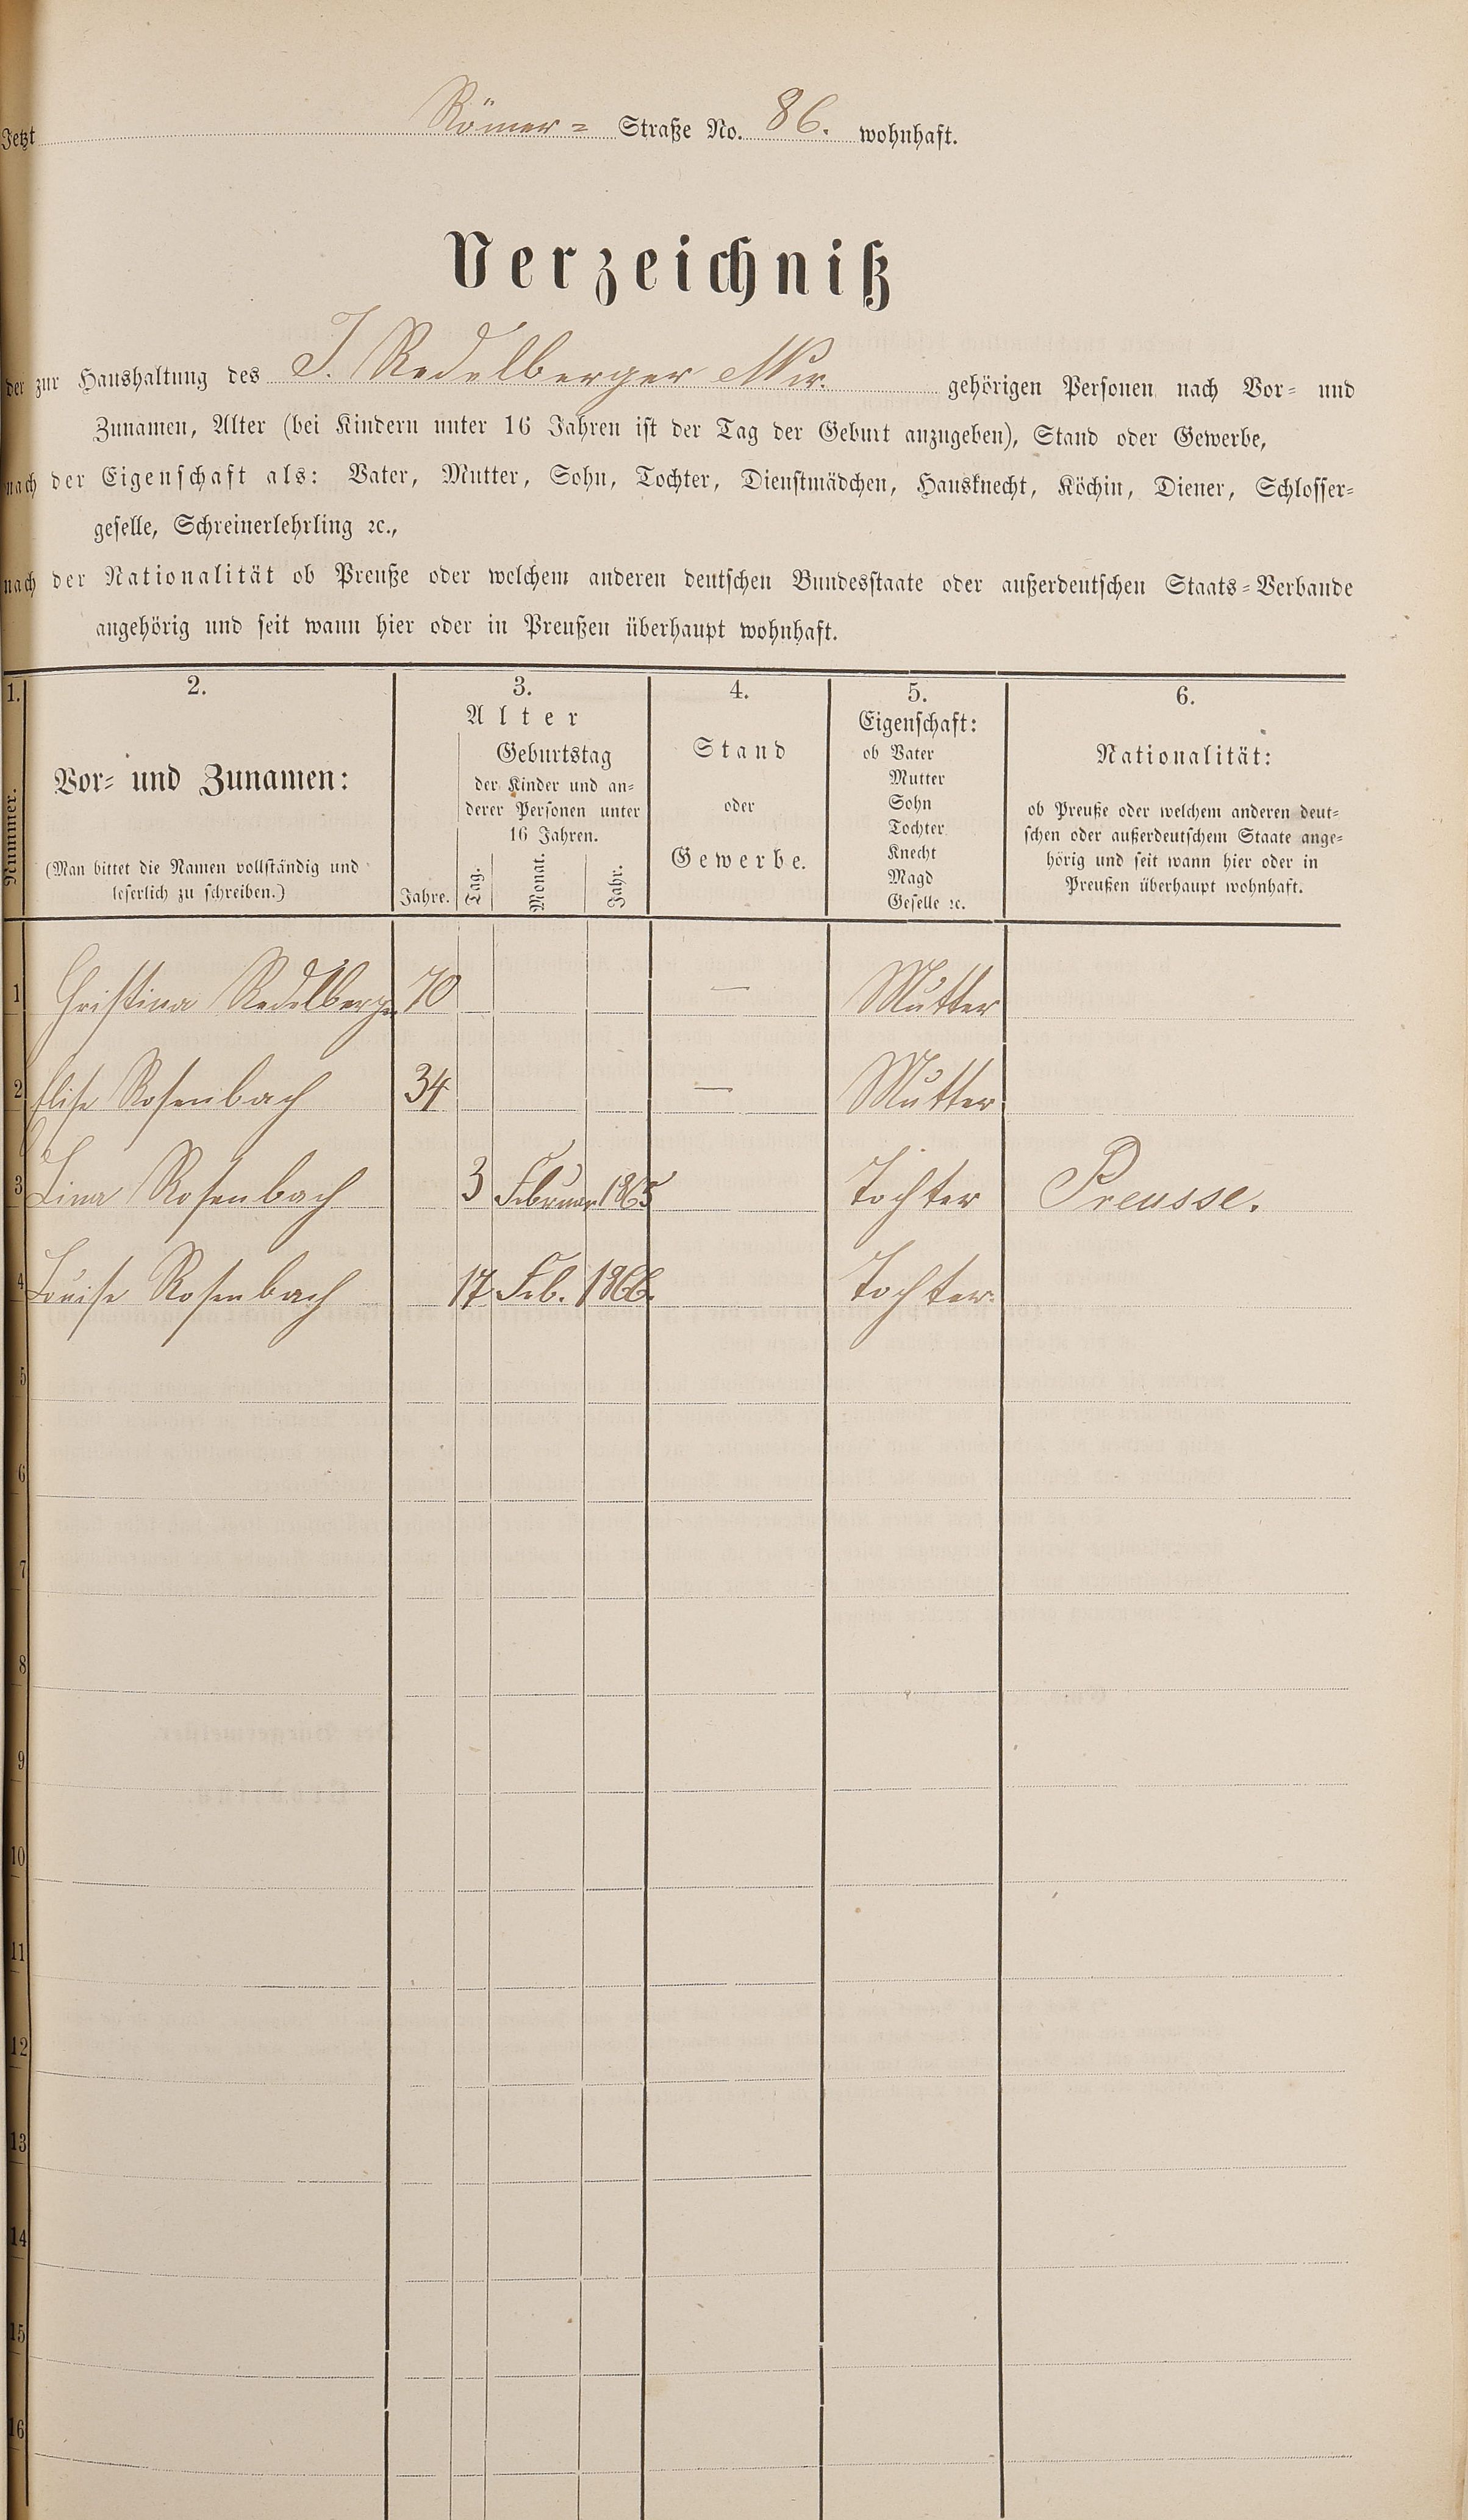 Jetzt Römer= Straße No. 86. wohnhaft.
Verzeichniß
der zur Haushaltung des J. Redelberger Wwe. gehörigen Personen nach Vor= und
Zunamen, Alter (bei Kindern unter 16 Jahren ist der Tag der Geburt anzugeben), Stand oder Gewerbe,
nach der Eigenschaft als: Vater, Mutter, Sohn, Tochter, Dienstmädchen, Hausknecht, Köchin, Diener, Schlosser=
geselle, Schreinerlehrling ꝛc.,
nach der Nationalität ob Preuße oder welchem anderen deutschen Bundesstaate oder außerdeutschen Staats=Verbande
angehörig und seit wann hier oder in Preußen überhaupt wohnhaft.
1. 2. 3. 4. 5. 6.
Nummer.
Vor= und Zunamen:
(Man bittet die Namen vollständig und
leserlich zu schreiben.)
Alter
Jahre.
Geburtstag
der Kinder und an=
derer Personen unter
16 Jahren.
Tag. Monat. Jahr.
Stand
oder
Gewerbe.
Eigenschaft:
ob Vater
Mutter
Sohn
Tochter
Knecht
Magd
Geselle ꝛc.
Nationalität:
ob Preuße oder welchem anderen deut=
schen oder außerdeutschem Staate ange=
hörig und seit wann hier oder in
Preußen überhaupt wohnhaft.
1 Christina Redelberger 70 — Mutter
2 Elise Rosenbach 34 — Mutter
3 Lina Rosenbach 3 Februar 1865 Tochter Preusse.
4 Louise Rosenbach 17 Feb. 1866. Tochter
5
6
7
8
9
10
11
12
13
14
15
16